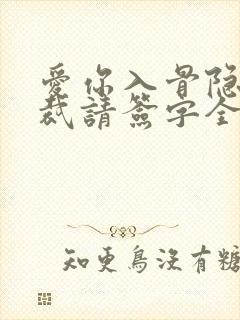 愛你入骨隐
裁請簽字全
知更鳥沒有糖